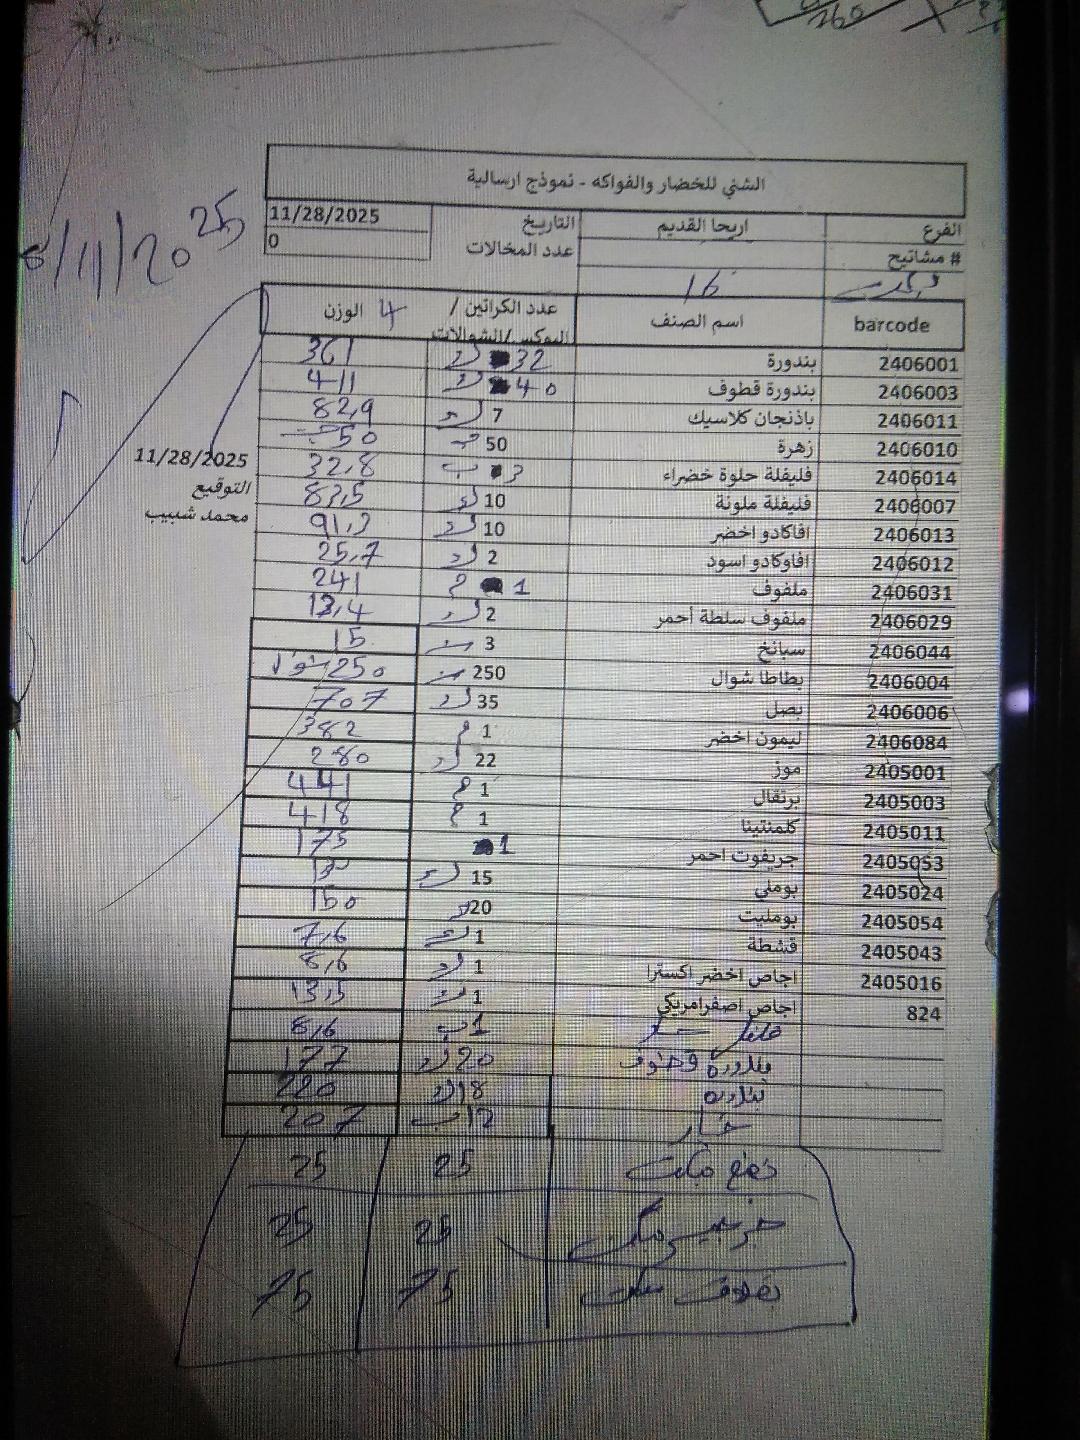 260
الشني للخضار والفواكه - نموذج ارسالية
الفرع اريحا القديم التاريخ 11/28/2025
# مشاتيح 16 عدد المخالات 0
/11/2025
barcode اسم الصنف عدد الكراتين / البوكس/الشوالات الوزن 4
2406001 بندورة 32 361
2406003 بندورة قطوف 40 411
2406011 باذنجان كلاسيك 7 82,9
2406010 زهرة 50 50
2406014 فليفلة حلوة خضراء 3 ب 32,8
2406007 فليفلة ملونة 10 83,5
2406013 افاكادو اخضر 10 91,3
2406012 افاوكادو اسود 2 25,7
2406031 ملفوف 1 م 241
2406029 ملفوف سلطة أحمر 2 13,4
2406044 سبانخ 3 15
2406004 بطاطا شوال 250 250
2406006 بصل 35 707
2406084 ليمون اخضر 1 م 382
2405001 موز 22 280
2405003 برتقال 1 م 441
2405011 كلمنتينا 1 م 418
2405053 جريفوت احمر 1 175
2405024 بوملي 15
2405054 بومليت 20 150
2405043 قشطة 1 7,6
2405016 اجاص اخضر اكسترا 1 8,6
824 اجاص اصفرامريكي 1 13,5
1 ب 8,6
بندورة قطوف 20 177
بندوره 18 220
خيار 12 ب 207
25 25
25 25
75 75
11/28/2025
التوقيع
محمد شبيب